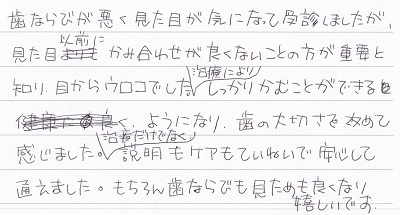 歯ならびが悪く見た目が気になって受診しましたが、
見た目以前にかみ合わせが良くないことの方が重要と
知り、目からウロコでした。治療によりしっかりかむことができる
ようになり、歯の大切さを改めて
感じました。治療だけでなく説明もケアもていねいで安心して
通えました。もちろん歯ならびも見ためも良くなり
嬉しいです。